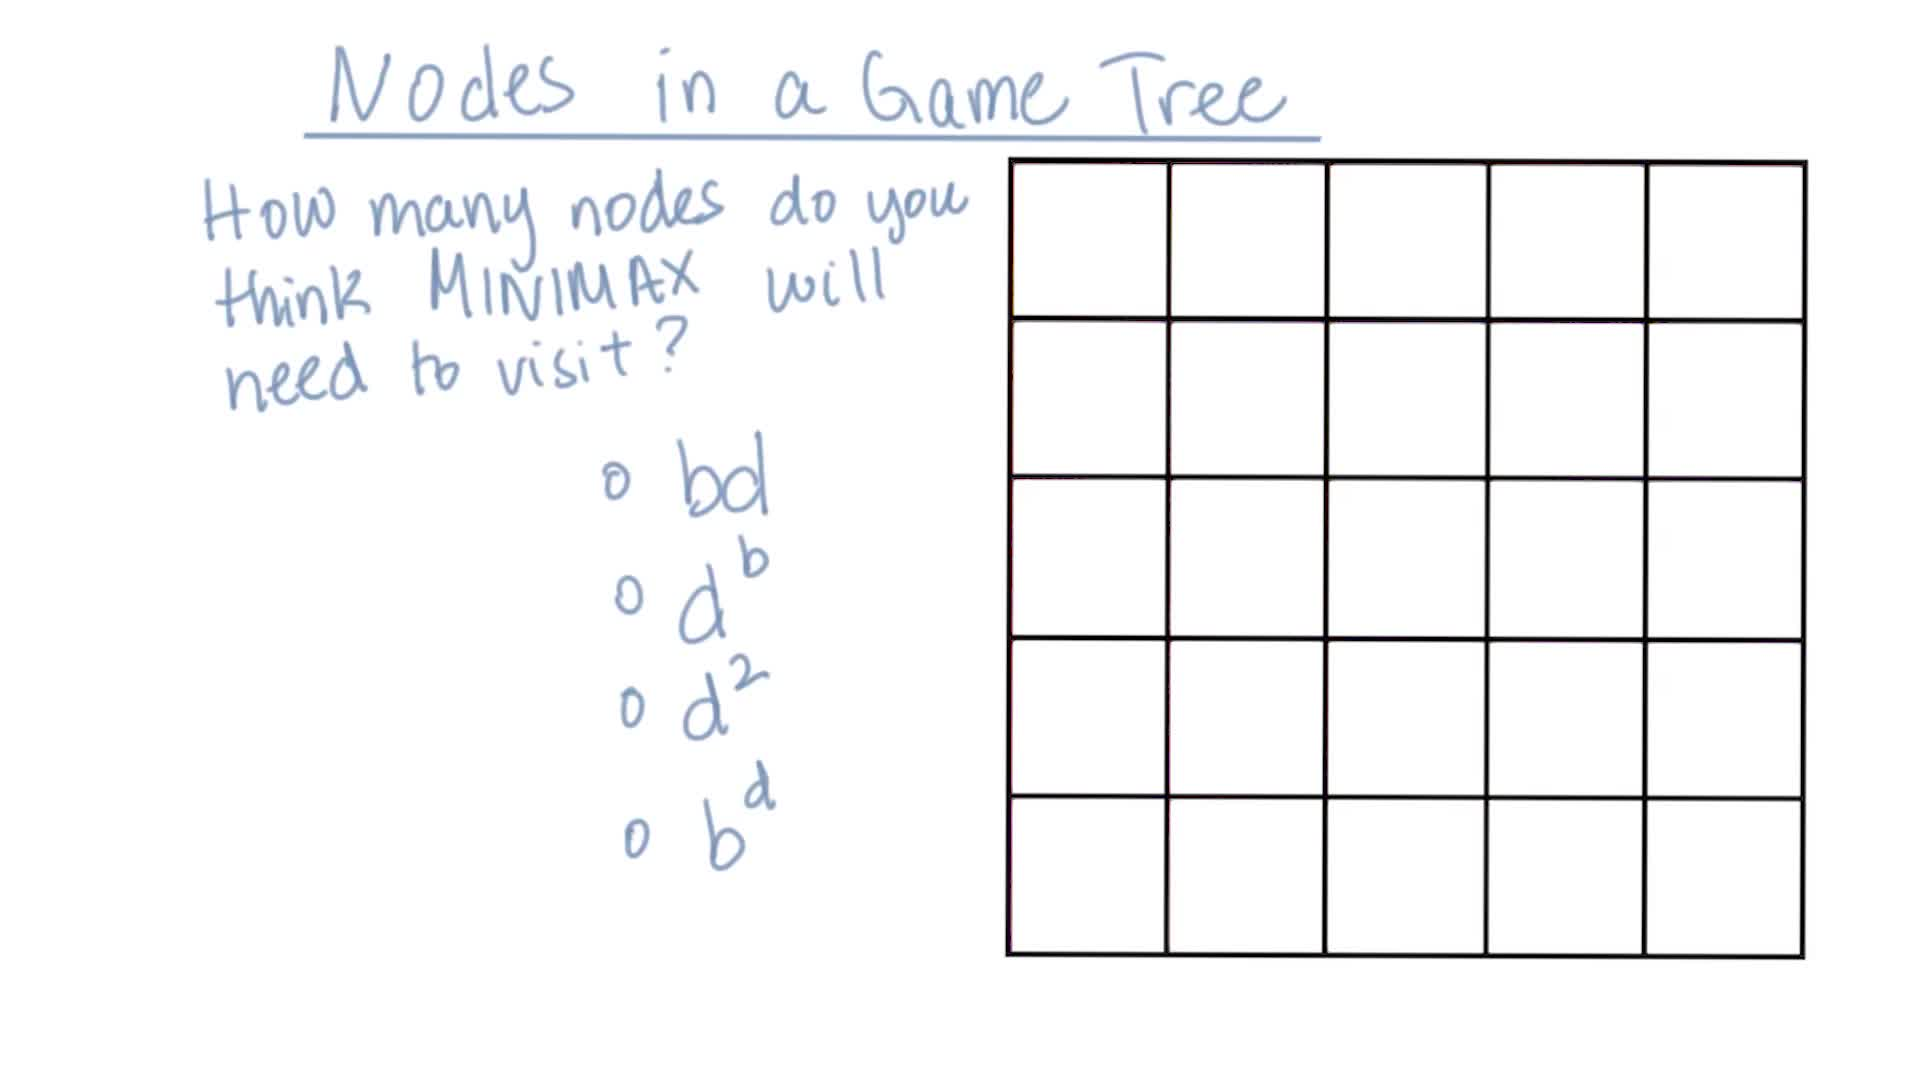 Nodes in a Game Tree
How many nodes do you
think MINIMAX will
need to visit?
o bd
o d^b
o d^2
o b^d